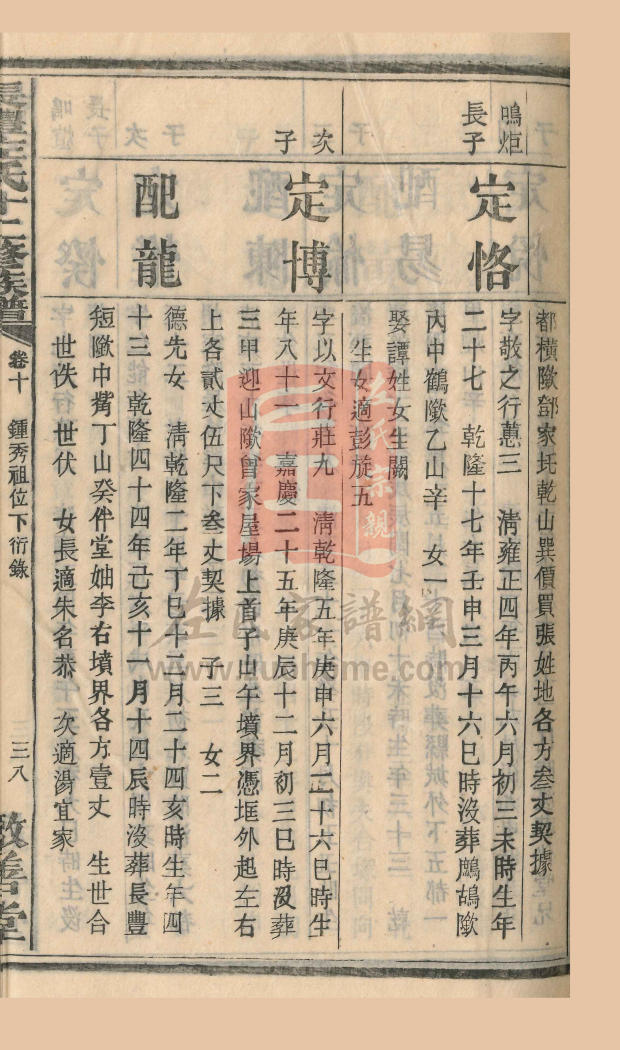 都橫㘓鄧家圫乾山巽價買張姓地各方叁丈契據
鳴炬
長子
定恪
字敬之行蕙三 清雍正四年丙午六月初三未時生年
二十七 乾隆十七年壬申三月十六巳時沒葬鷓鴣㘓
內中鶴㘓乙山辛 女一
娶譚姓女生關
生女適彭旋五
次
子
定博
字以文行莊九 清乾隆五年庚申六月二十六巳時生
年八十一 嘉慶二十五年庚辰十二月初三巳時沒葬
三甲迎山㘓曾家屋場上首子山午墳界憑堀外起左右
上各貳丈伍尺下叁丈契據 子三 女二
配龍
德先女 清乾隆二年丁巳十二月二十四亥時生年四
十三 乾隆四十四年己亥十一月十四辰時沒葬長豐
短㘓中觜丁山癸伴堂妯李右墳界各方壹丈 生世合
世佚 世伏 女長適朱名恭 次適湯宜家
左氏十二修族譜
卷十 鍾秀祖位下衍錄
三八
敦善堂
左氏宗親
左氏家譜網